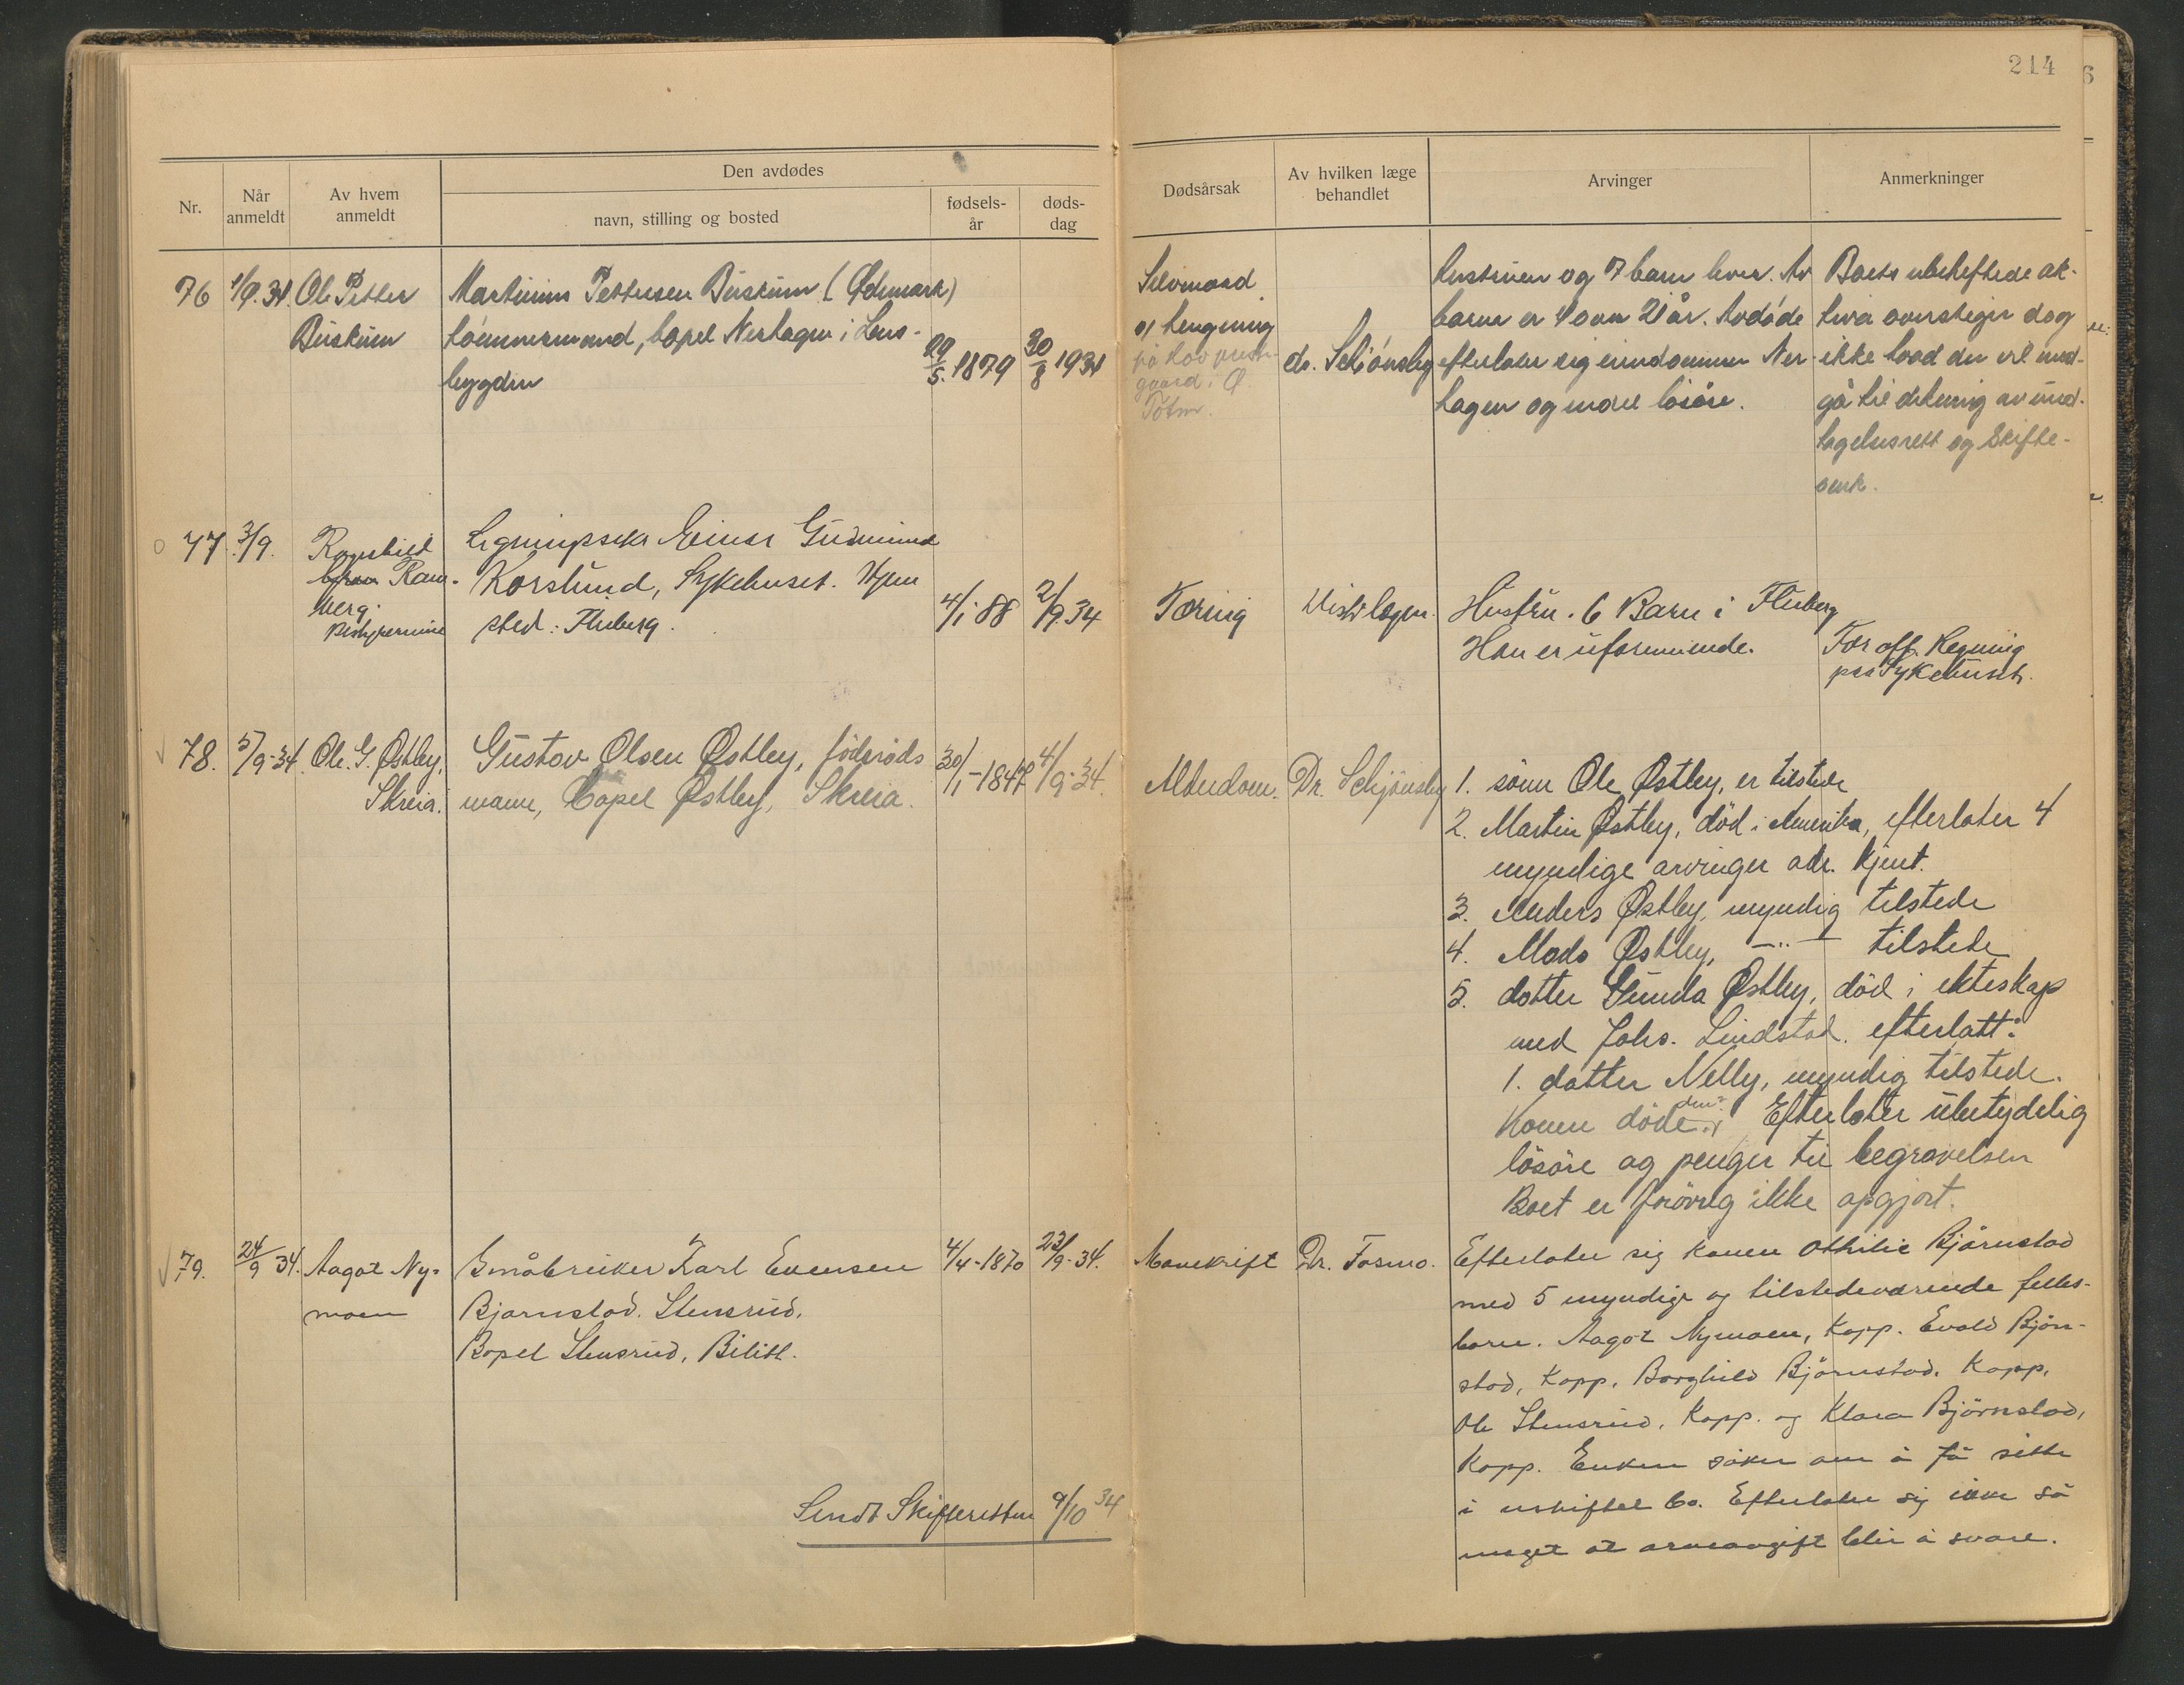 214
Den avdødes
Nr.
Når anmeldt
Av hvem anmeldt
navn, stilling og bosted
fødsels-år
døds-dag
Dødsårsak
Av hvilken læge behandlet
Arvinger
Anmerkninger
76
1/9.34.
Ole Petter
Buskum
Martinius Pettersen Buskum (Ødemark)
tömmermand, bopel Nerhagen i Lens-
bygden
29/5.1879
30/8 1934
Selvmord
v/ hengning
på Hov prest-
gaard i Ø.
Toten.
dr. Schönsby
hustruen og 7 barn lever. Av
barna er 4 over 21 år. Avdöde
efterlater sig eiendommen Ner-
hagen og endel lösöre.
Boets ubeheftede ak-
tiva overstiger dog
ikke hvad der vil med-
gå til dekning av und-
tagelsesrett og Skifte-
77
3/9.
Ragnhild
Ram-
berg.
Bestyrerinne
Einar Gudmund
Korslund, Sykehuset. Hjem
sted: Fluberg.
4/1 88
2/9.34
Tæring
Distr.lægen.
Hustru. 6 Barn i Fluberg
Han er uformuende.
For off. Regning
paa Sykehuset.
78.
5/9-34.
Ole G. Østby,
Skreia.
Gustav Olsen Østby, föderåds
mann, Bopel Østby, Skreia.
30/1-1847
4/9-34.
Alderdom.
Dr. Schjönsby
1. sönn Ole Østby, er tilstede
2. Martin Østby, död i Amerika, efterlater 4
myndige arvinger adr. kjent.
3. Anders Østby, myndig tilstede
4. Mads Østby, —"— tilstede
5. datter Gunda Østby, död i ekteskap
med Johs. Lindstad. efterlatt:
1. datter Nelly, myndig tilstede.
Konen döde den? Efterlater ubetydelig
lösöre og penger til begravelsen
Boet er forövrig ikke opgjort.
79.
24/9 34.
Aagot Ny-
moen
Småbruker Karl Evensen
Bjørnstad. Stensrud.
Bopel Stensrud, Bilitt.
4/4-1870
23/9-34.
Mavekreft
Dr. Fosmo.
Efterlater sig konen Othilie Björnstad
med 5 myndige og tilstedeværende felles-
barn. Aagot Nymoen, Kapp. Evald Björn-
stad, Kapp. Borghild Björnstad. Kapp.
Ole Stensrud, Kapp. og Klara Björnstad,
Kapp. Enken söker om å få sitte
i uskiftet bo. Efterlater sig ikke så
meget at arveavgift blir å svare.
Sendt Skifteretten 9/10 34